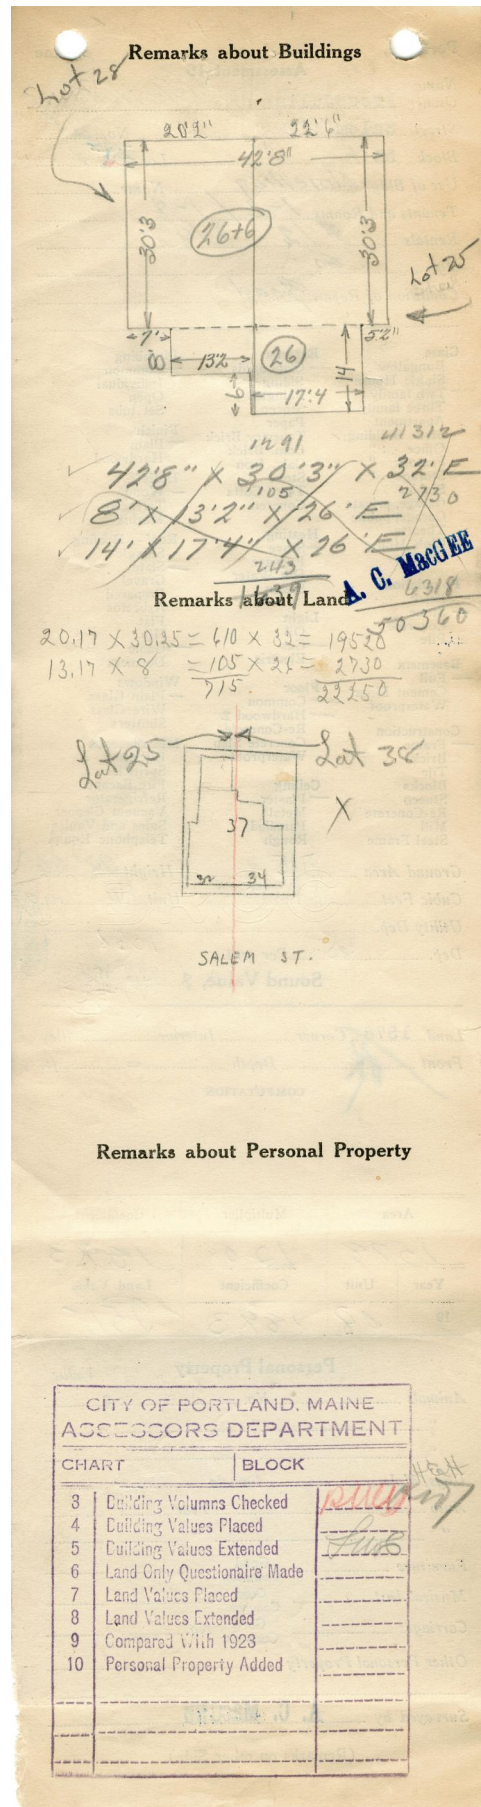 Remarks about Buildings
Lot 28
20'2" 22'6"
42'8"
30'3 26+6 30'3
Lot 25
7' 5'2"
8' 13'2 26 14
6 17'4
1291 41312
42'8" X 30'3" X 32' E
105 2730
8' X 13'2" X 26' E
14' X 17'4" X 26' E
243 6318
A. C. MacGEE
1639 50360
Remarks about Land
20.17 X 30.25 = 610 X 32 = 19520
13.17 X 8 = 105 X 26 = 2730
715. 22250
Lot 25 Lot 38
X
37
32 34
SALEM ST.
Remarks about Personal Property
CITY OF PORTLAND, MAINE
ASSESSORS DEPARTMENT
CHART BLOCK
3 Building Volumns Checked
4 Building Values Placed
5 Building Values Extended
6 Land Only Questionaire Made
7 Land Values Placed
8 Land Values Extended
9 Compared With 1923
10 Personal Property Added